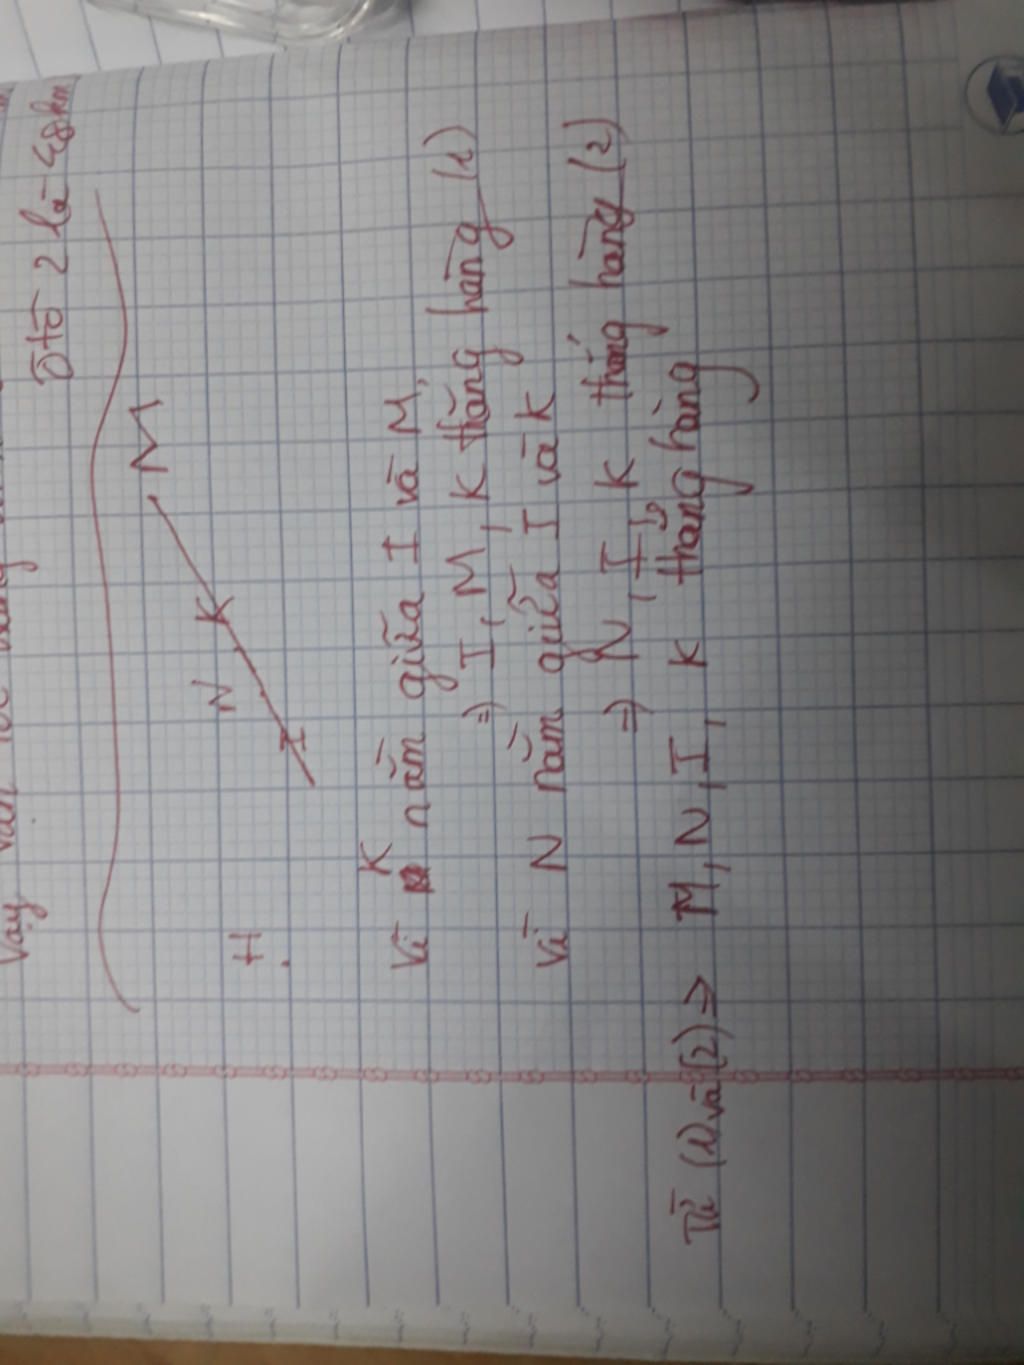 Vậy vận tốc
Ôtô 2 là 48km
M
K
N
I
H
Vì K nằm giữa I và M,
=> I, M, K thẳng hàng (1)
Vì N nằm giữa I và K
=> N, I, K thẳng hàng (2)
Từ (1) và (2) => M, N, I, K thẳng hàng